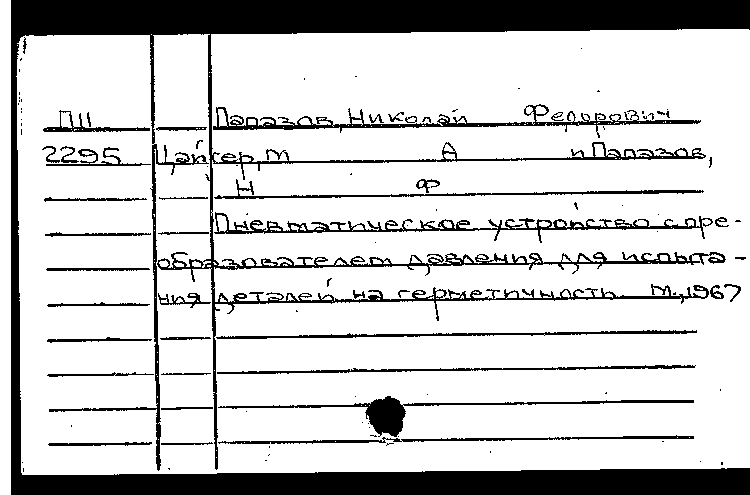 ПШ Папазов, Николай Федорович
2295 Цайгер, М А и Папазов,
Н Ф
Пневматическое устройство с пре-
образователем давления для испыта-
ния деталей на герметичность. М., 1967